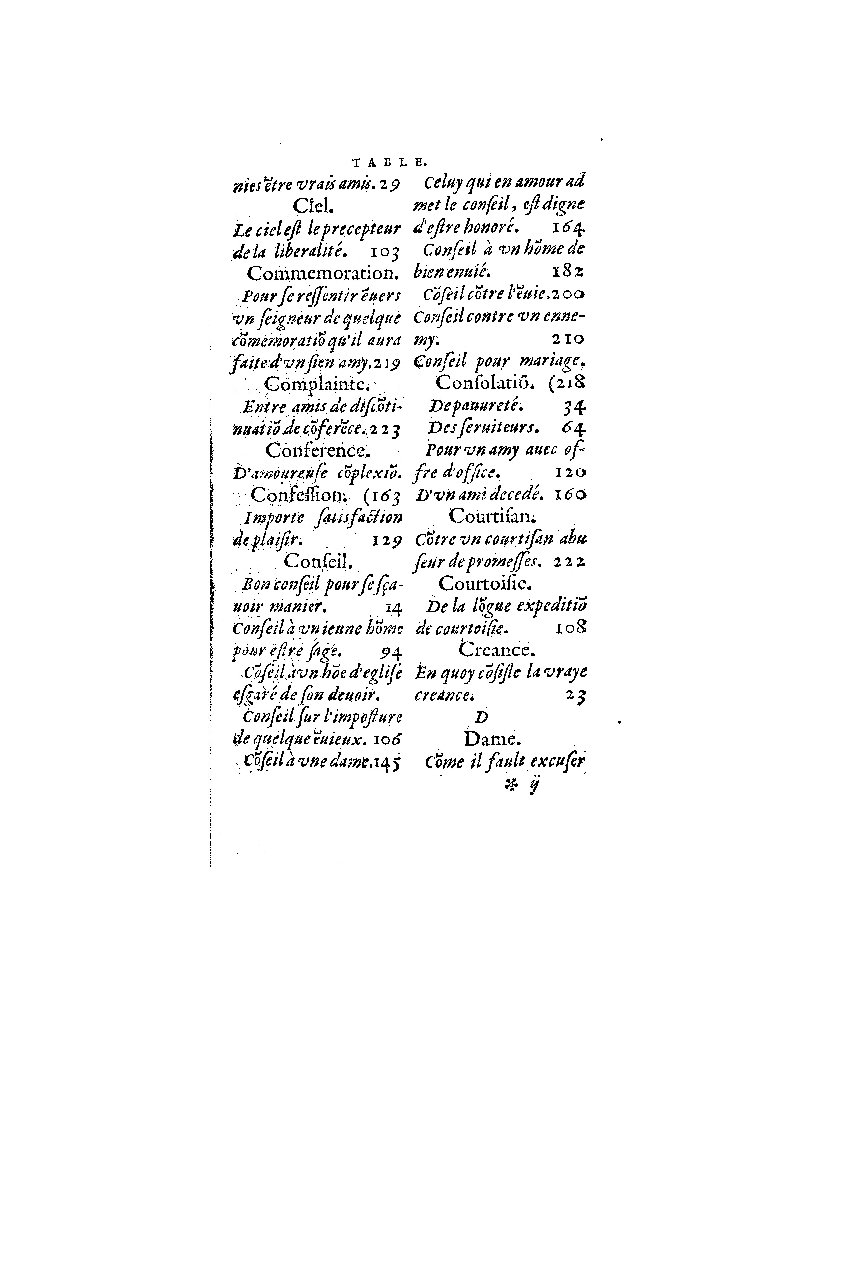 TABLE.
nies ẽtre vrais amis. 29
Ciel.
Le ciel eſt le precepteur
de la liberalité. 103
Commemoration.
Pour ſe reſſentir ẽuers
vn ſeigneur de quelque
cõmemoratiõ qu'il aura
faite d'vn ſien amy. 219
Complainte.
Entre amis de diſcõti-
nuatiõ de cõferẽce. 223
Conference.
D'amoureuſe cõplexiõ.
Confeſſion. (163
Importe ſatisfaction
de plaiſir. 129
Conſeil.
Bon conſeil pour ſe ſça-
uoir manier. 14
Conſeil à vn ieune hõme
pour eſtre ſage. 94
Cõſeil à vn hõe d'egliſe
eſgaré de ſon deuoir.
Conſeil ſur l'impoſture
de quelque ẽuieux. 106
Cõſeil à vne dame. 145
Celuy qui en amour ad
met le conſeil, eſt digne
d'eſtre honoré. 164
Conſeil à vn hõme de
bien enuié. 182
Cõſeil cõtre l'ẽuie. 200
Conſeil contre vn enne-
my. 210
Conſeil pour mariage.
Conſolatiõ. (218
De pauureté. 34
Des ſeruiteurs. 64
Pour vn amy auec of-
fre d'office. 120
D'vn ami decedé. 160
Courtiſan.
Cõtre vn courtiſan abu
ſeur de promeſſes. 222
Courtoiſie.
De la lõgue expeditiõ
de courtoiſie. 108
Creance.
En quoy cõſiſte la vraye
creance. 23
D
Dame.
Cõme il fault excuſer
* ij